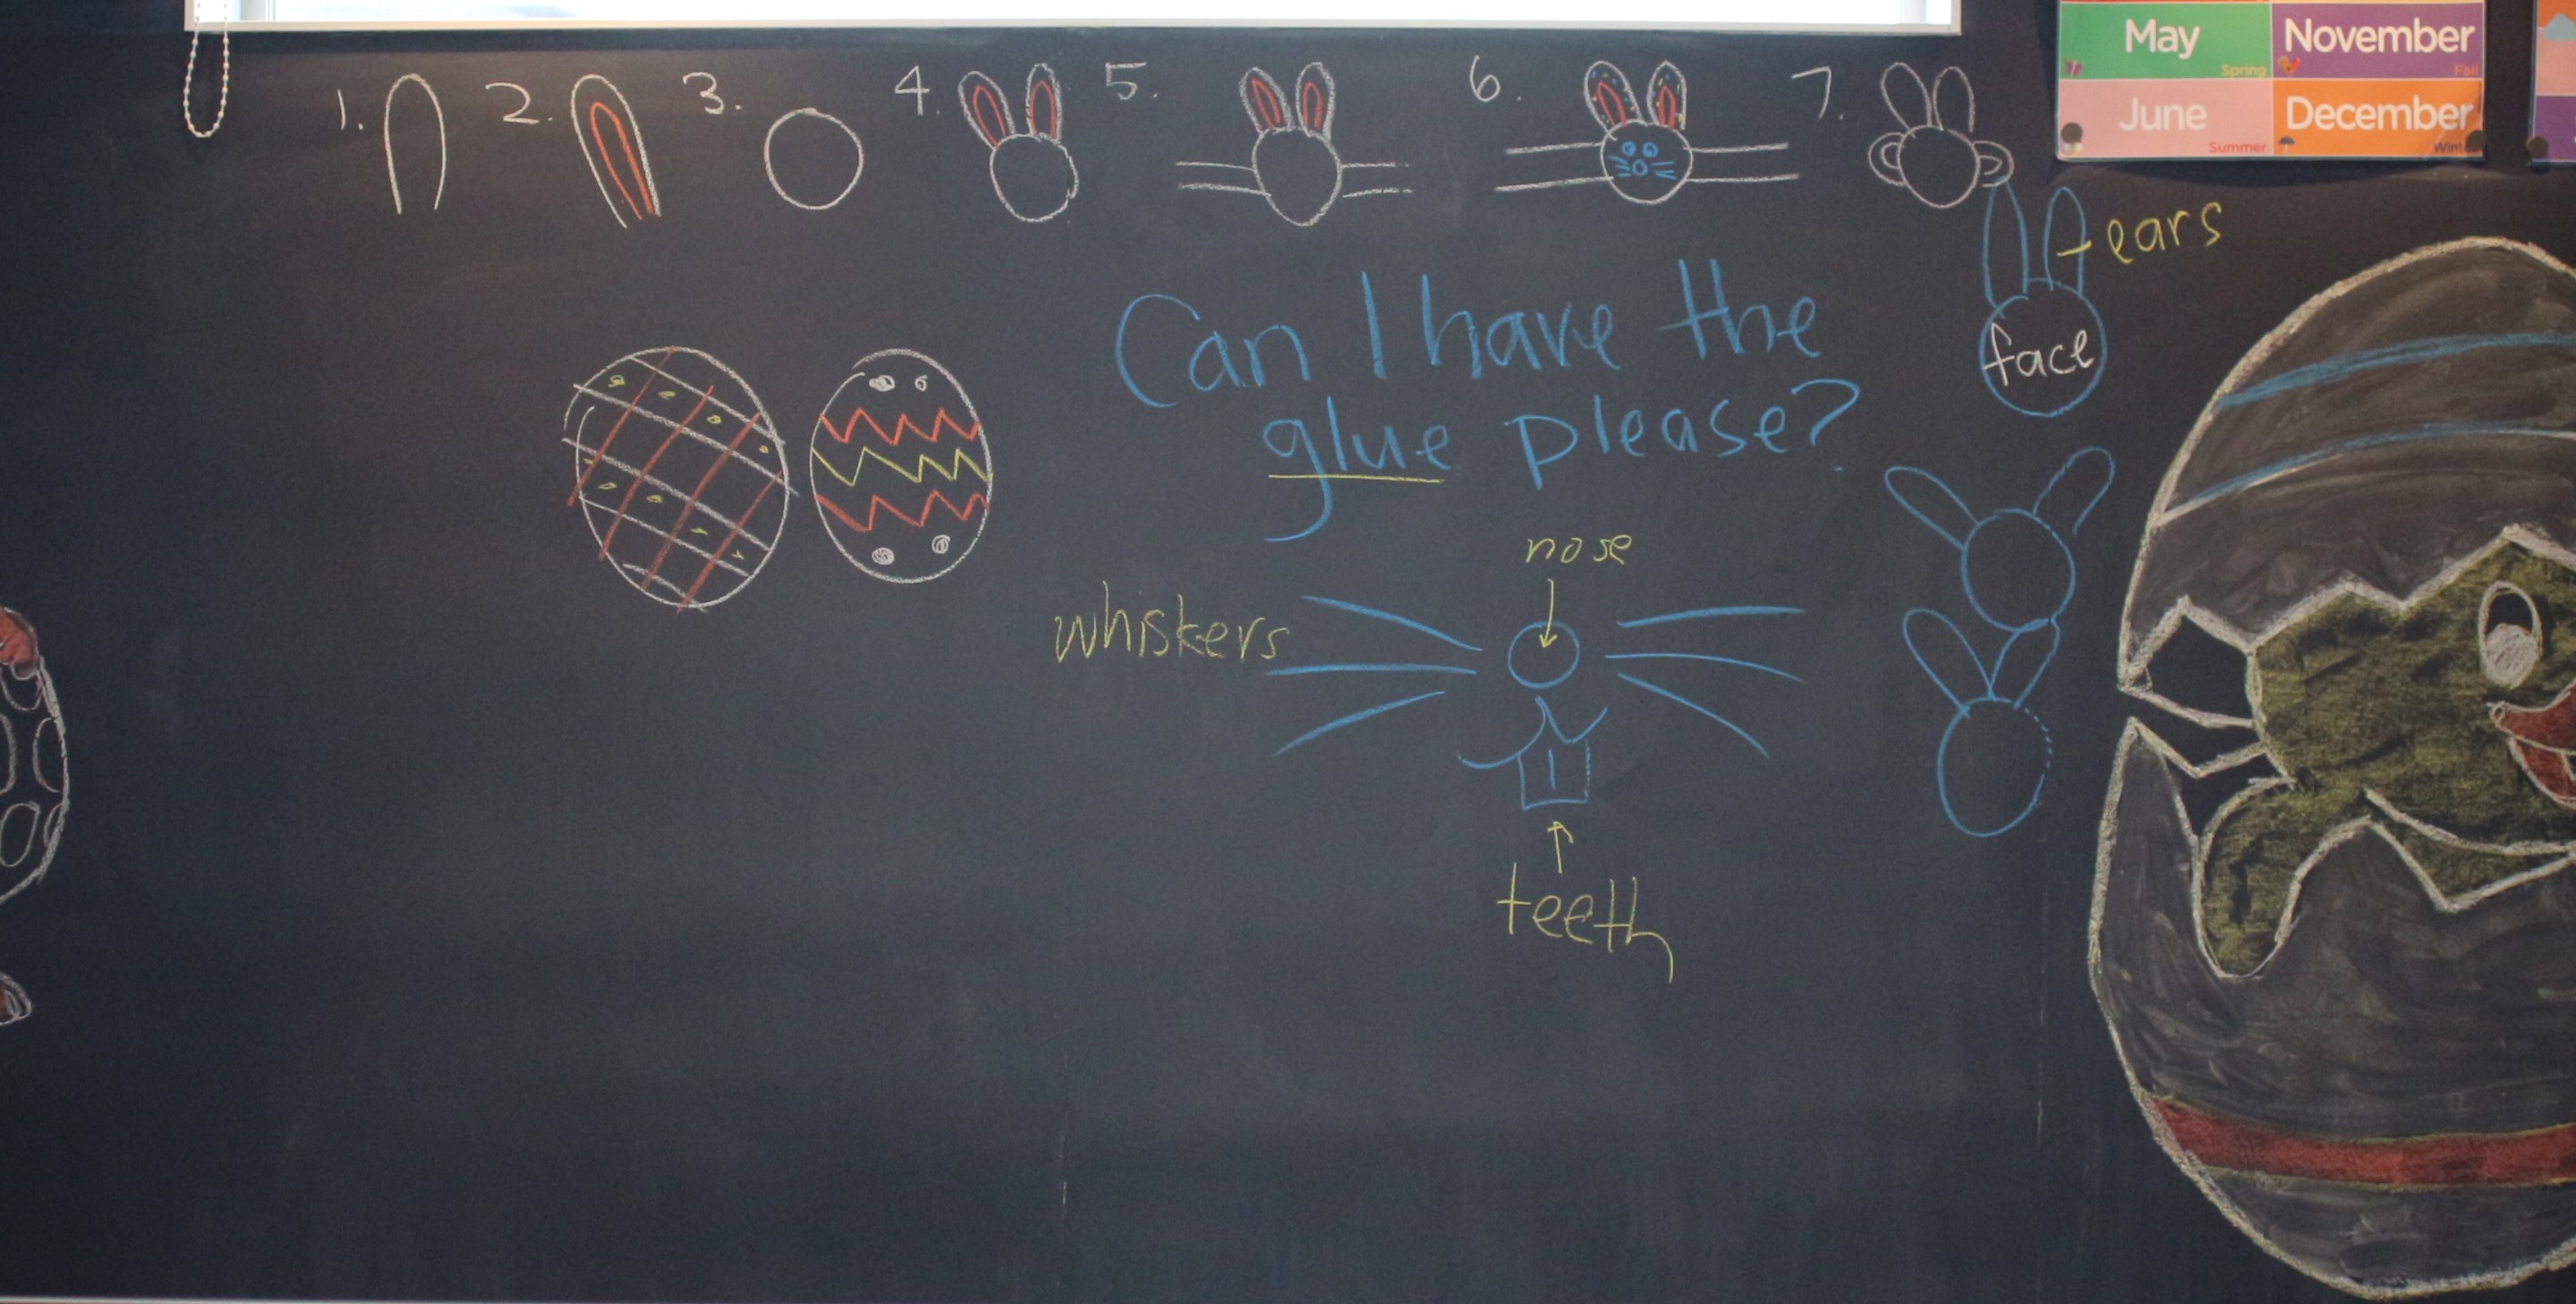 May
Spring
November
Fall
June
Summer
December
1.
2.
3.
4.
5.
6.
7.
ears
face
Can I have the
glue please?
nose
whiskers
teeth